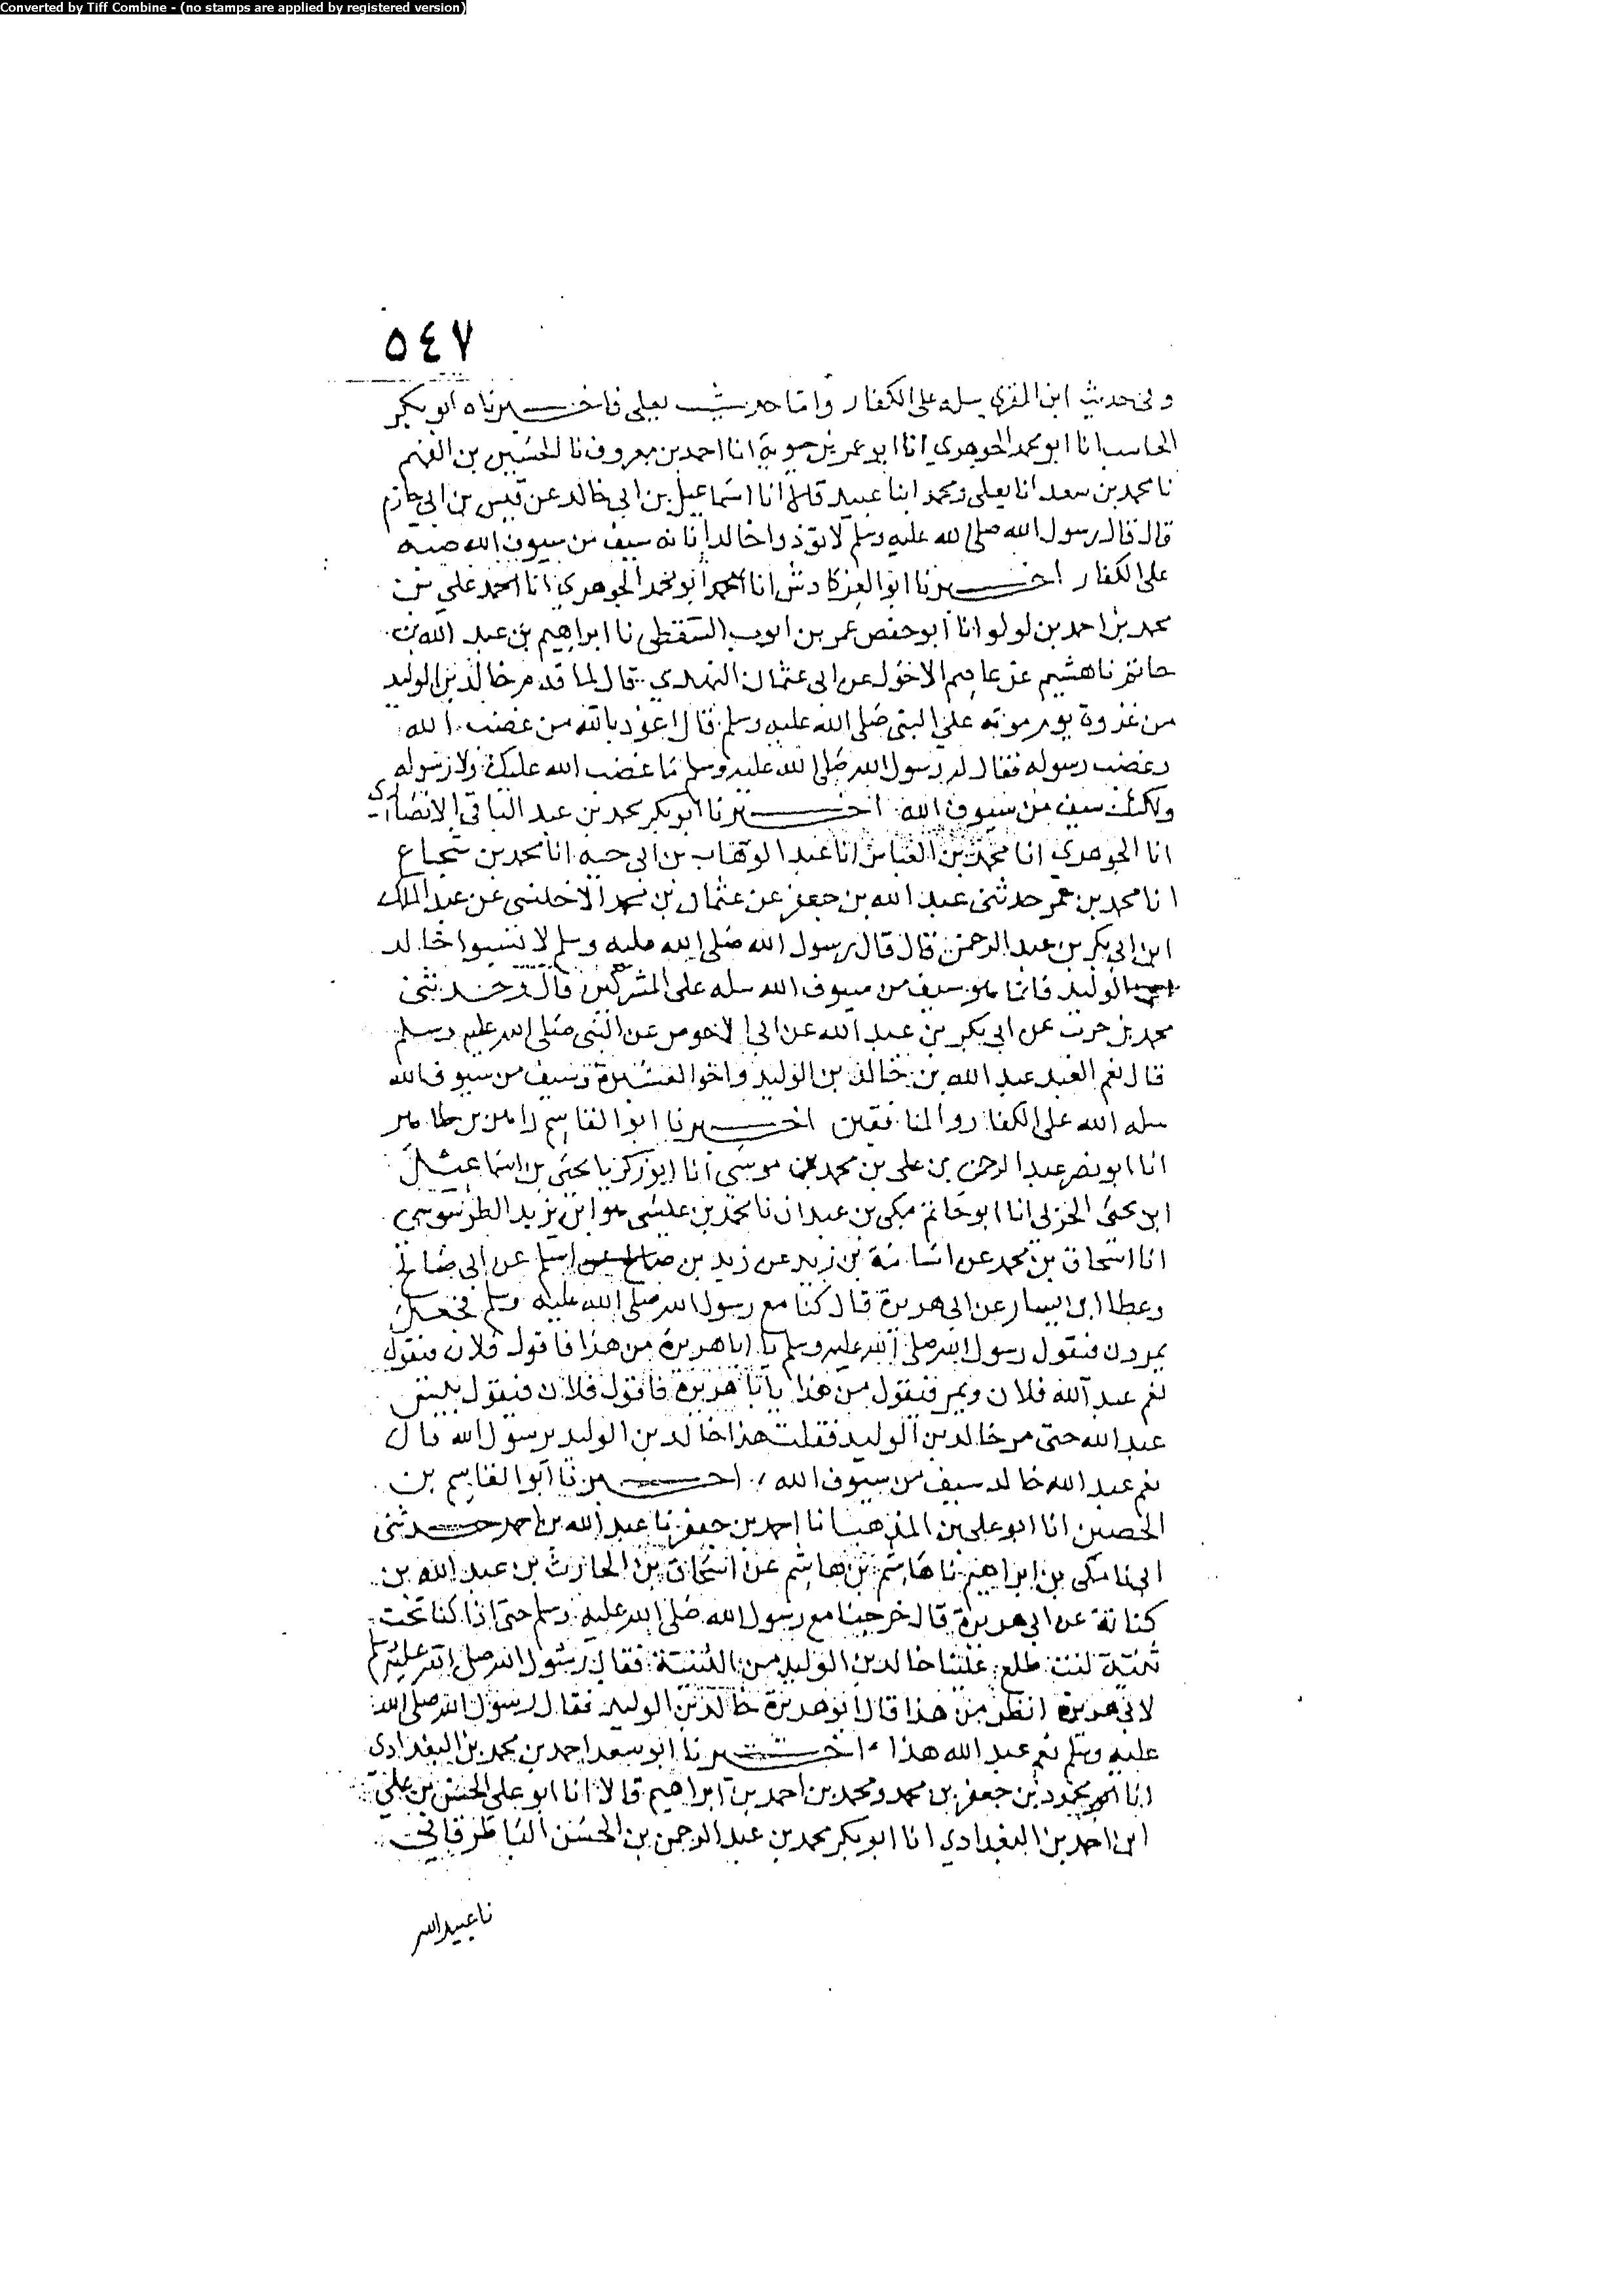 Converted by Tiff Combine - (no stamps are applied by registered version)
٥٤٧
وفي حديث ابن المقرئ سله على الكفار وامّا حديث يعلى فاخبرناه ابو بكر
الحاسب انا ابو محمد الجوهري انا ابو عمر بن حيوية انا احمد بن معروف نا الحسين بن الفهم
نا محمد بن سعد انا يعلى ومحمد ابنا عبيد قالا انا اسماعيل بن ابي خالد عن قيس بن ابي حازم
قال قال رسول الله صلى الله عليه وسلم لا تؤذوا خالدا فانه سيف من سيوف الله صبه
على الكفار اخبرنا ابو العز كادش انا ابو محمد الجوهري انا علي بن
محمد بن احمد بن لولو انا ابو حفص عمر بن ايوب السقطي نا ابراهيم بن عبد الله بن
حاتم نا هشيم عن عاصم الاحول عن ابي عثمان النهدي قال لما قدم خالد بن الوليد
من غزوة يوم موته على النبي صلى الله عليه وسلم قال اعوذ بالله من غضب الله
وغضب رسوله فقال له رسول الله صلى الله عليه وسلم ما غضب الله عليك ولا رسوله
ولكنك سيف من سيوف الله اخبرنا ابو بكر محمد بن عبد الباقي الانصاري
انا الجوهري انا محمد بن العباس انا عبد الوهاب بن ابي حيه انا محمد بن شجاع
انا محمد بن عمر حدثني عبد الله بن جعفر عن عثمان بن محمد الاخنسي عن عبد الملك
ابن ابي بكر بن عبد الرحمن قال قال رسول الله صلى الله عليه وسلم لا تسبوا خالد
بن الوليد فانما هو سيف من سيوف الله سله على المشركين قال وحدثني
محمد بن حرب عن ابي بكر بن عبد الله عن ابي الاحوص عن النبي صلى الله عليه وسلم
قال نعم العبد عبد الله بن خالد بن الوليد واخو العشيرة وسيف من سيوف الله
سله الله على الكفار والمنافقين اخبرنا ابو القاسم زاهر بن طاهر
انا ابو نصر عبد الرحمن بن علي بن محمد بن موسى انا ابو زكريا يحيى بن اسماعيل
ابن يحيى الحربي انا ابو حاتم مكي بن عبدان نا محمد بن عيسى هو ابن يزيد الطرسوسي
انا اسحاق بن محمد عن اسامة بن زيد عن زيد بن اسلم عن ابي صالح
وعطا ابن يسار عن ابي هريرة قال كنا مع رسول الله صلى الله عليه وسلم فجعل
يمرون فيقول رسول الله صلى الله عليه وسلم يا ابا هريرة من هذا فاقول فلان فيقول
نعم عبد الله فلان ويمر فيقول من هذا يا ابا هريرة فاقول فلان فيقول بيس
عبد الله حتى مر خالد بن الوليد فقلت هذا خالد بن الوليد يرسول الله قال
نعم عبد الله خالد سيف من سيوف الله اخبرنا ابو القاسم بن
الحصين انا ابو علي بن المذهب انا احمد بن جعفر نا عبد الله بن احمد حدثني
ابي نا مكي بن ابراهيم نا هاشم بن هاشم عن اسحاق بن الحارث بن عبد الله بن
كنانة عن ابي هريرة قال خرجنا مع رسول الله صلى الله عليه وسلم حتى اذا كنا تحت
ثنية لفت طلع علينا خالد بن الوليد من الثنية فقال رسول الله صلى الله عليه وسلم
لابي هريرة انظر من هذا قال ابو هريرة خالد بن الوليد فقال رسول الله صلى الله
عليه وسلم نعم عبد الله هذا اخبرنا ابو سعد احمد بن محمد بن البغدادي
انا محمود بن جعفر بن محمد ومحمد بن احمد بن ابراهيم قالا انا ابو علي الحسن بن علي
ابن احمد بن البغدادي انا ابو بكر محمد بن عبد الرحمن بن الحسن الباطرقاني
نا عبيد الله